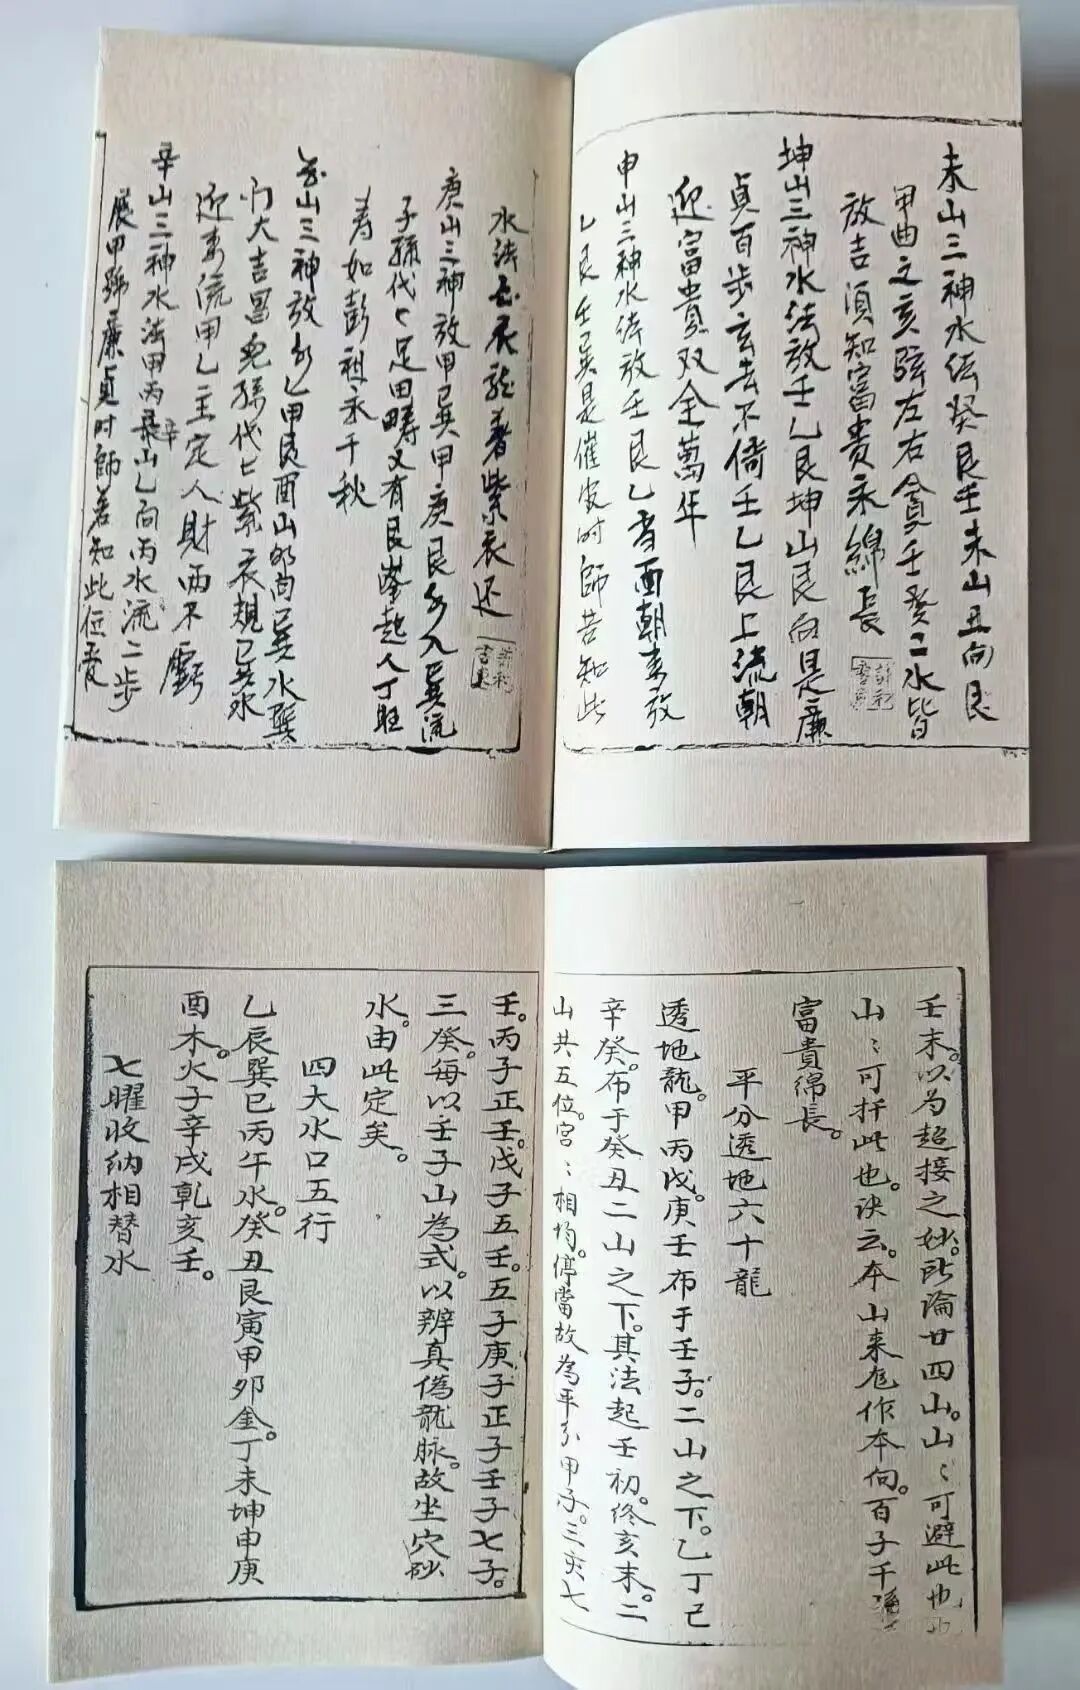 未山三神水法癸艮壬未山丑向艮
甲曲之亥弦左右貪壬癸二水皆
放吉須知富貴永綿長
坤山三神水法放壬乙艮坤山艮向是廉
貞百步玄去不倚壬乙艮上流朝
迎富貴双全萬年
申山三神水法放壬艮乙者酉朝来放
乙艮壬巽是催官时師若知此
水法衣着紫衣还
庚山三神放甲巳巽甲庚艮水入巽流
子孫代々足田疇又有艮峯起人丁旺
寿如彭祖永千秋
山三神放水乙甲艮酉山卯向巽水巽
门大吉昌兒孫代七紫衣親巳巽水
迎来流甲乙主定人財两不虧
辛山三神水法甲丙辛山乙向丙水流二步
展甲歸廉貞时師若知此位受
壬未。以为超接之妙。此論廿四山。山〻可避此也
山〻可扦此也。诀云。本山来龙作本向。百子千
富貴绵長。
平分透地六十龍
透地龍。甲丙戊庚壬布于壬子。二山之下。乙丁己
辛癸。布于癸丑二山之下。其法起壬初。终亥末。二
山共五位。宫〻相均。停當故為平分甲子。三亥七
壬。丙子正壬。戊子五壬。五子庚子正子壬子七子。
三癸。每以壬子山為式。以辨真僞龍脉。故坐穴砂
水。由此定矣。
四大水口五行
乙辰巽巳丙午水。癸丑艮寅甲卯金。丁未坤申庚
酉木。火子辛戌乾亥壬。
七曜收纳相替水